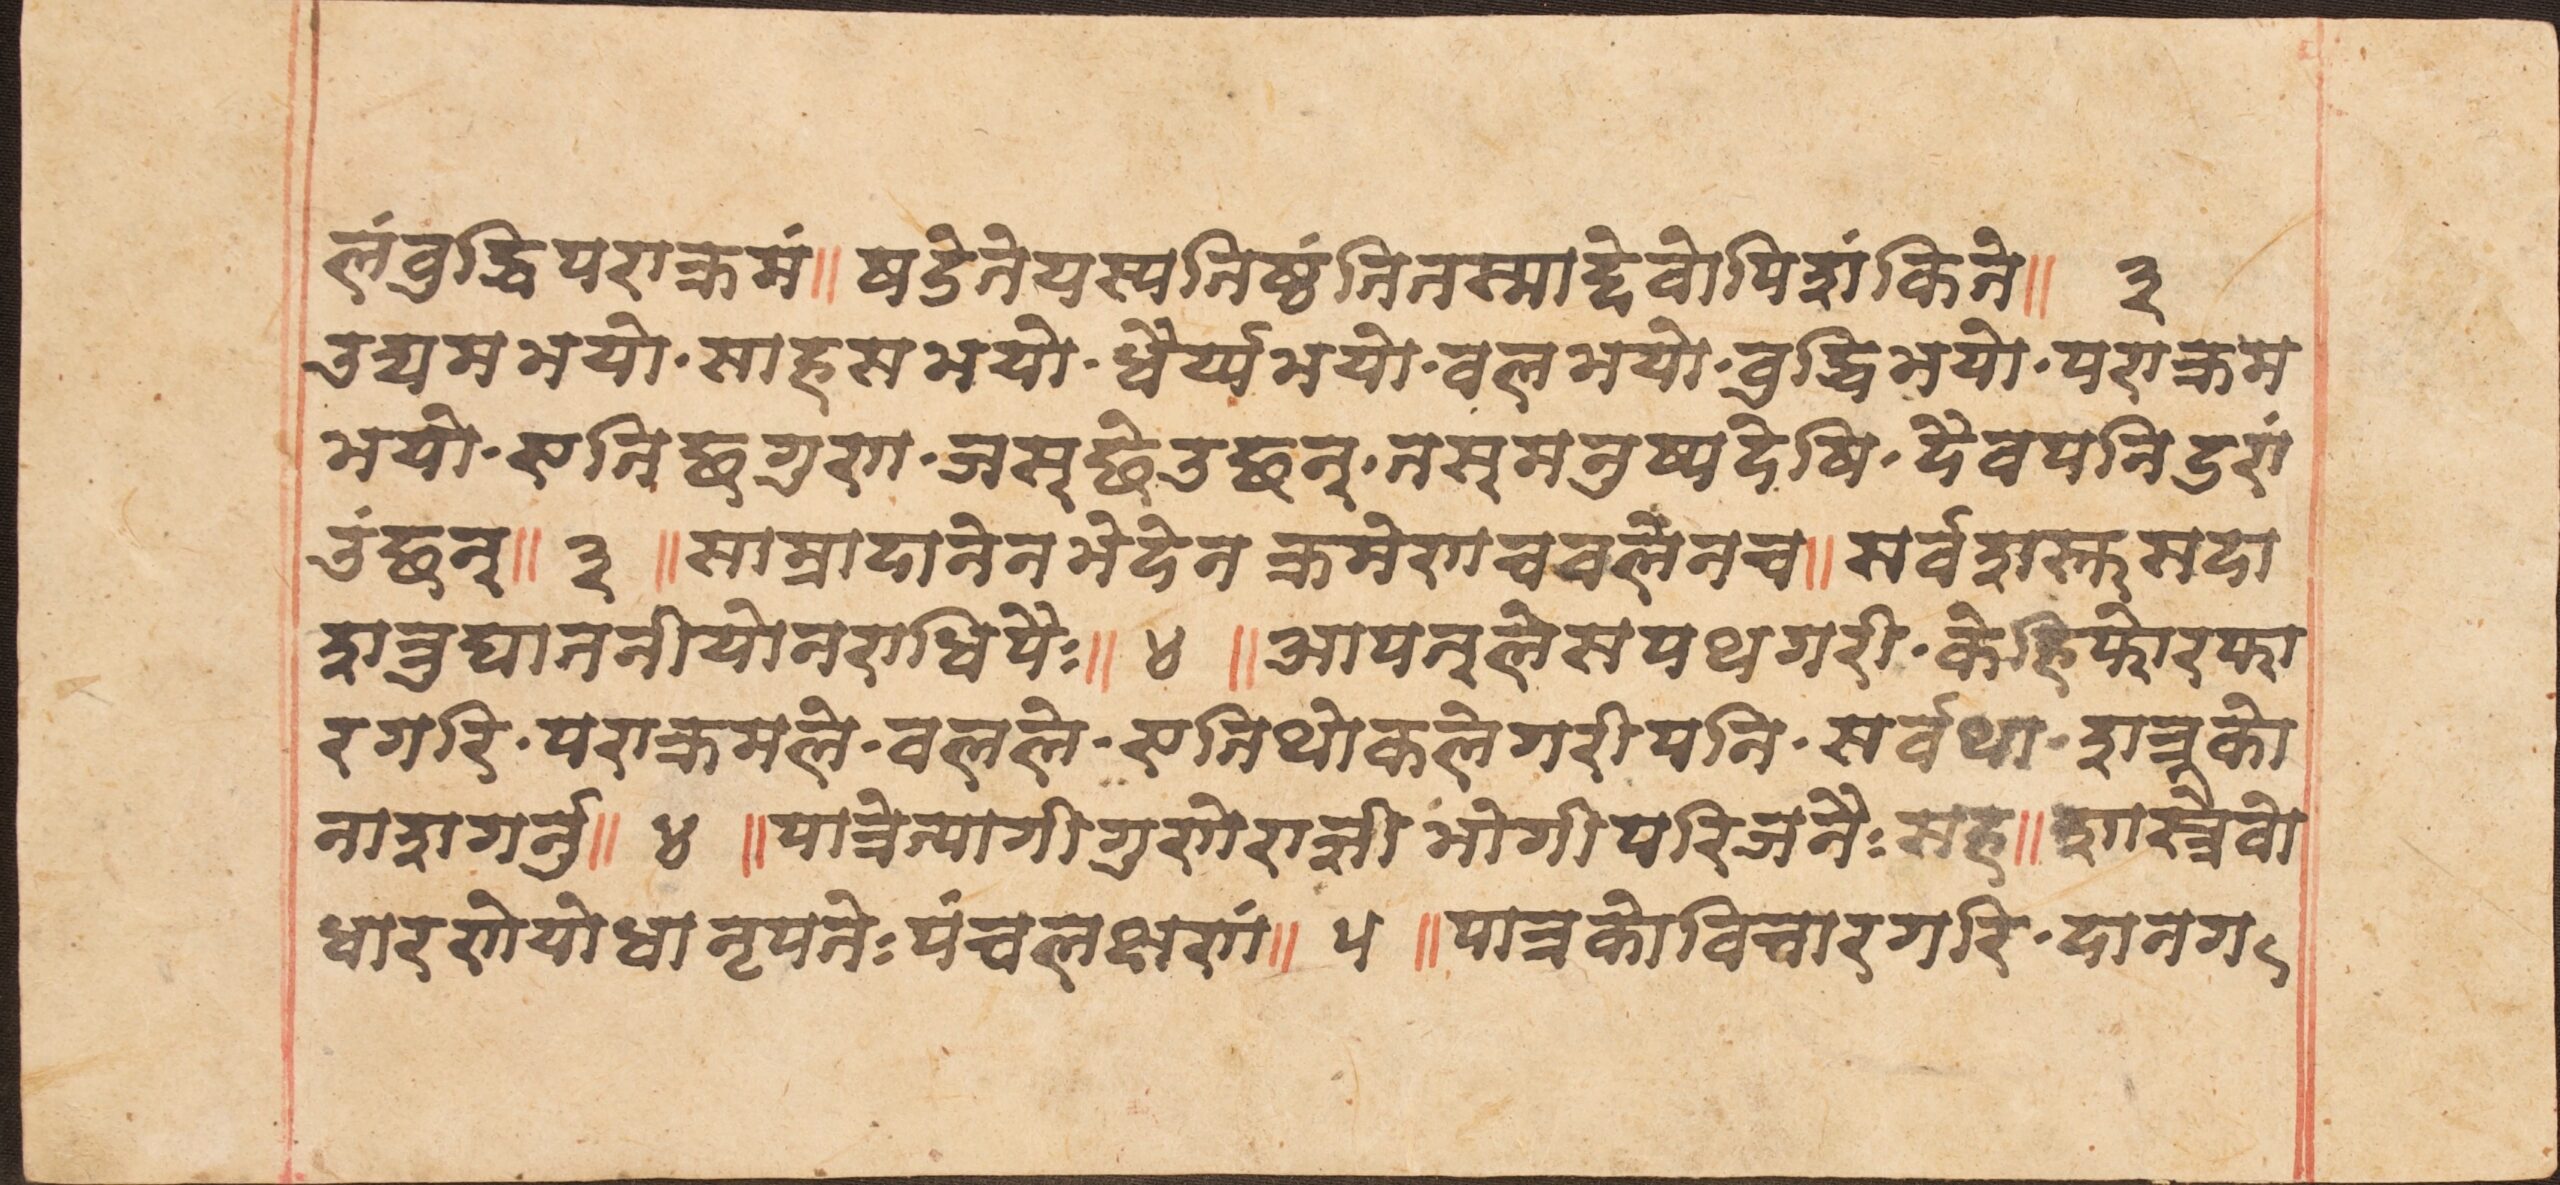 लंवुद्धिपराक्रमं॥ षडेतेयस्यतिष्ठंतितस्माद्देवोपिशंकिते॥ ३
उद्यमभयो·साहसभयो·धैर्य्यभयो·वलभयो·वुद्धिभयो·पराक्रम
भयो·एतिछगुण·जस्छेउछन्·तस्मनुष्यदेषि·दैवपनिडरां
उंछन्॥ ३ ॥साम्रादानेनभेदेन क्रमेणचवलेनच॥ सर्वशस्त्रसदा
शत्रुघातनीयोनराधिपैः॥ ४ ॥आपन्लेसपथगरी·केहिफोरफा
रगरि·पराक्रमले·वलले·एतिथोकलेगरीपनि·सर्वथा·शत्रुको
नाशगर्नु॥ ४ ॥पात्रेत्यागीगुणेरागी भोगीपरिजनैः सह॥ शास्त्रैवो
धारणेयोधा नृपतेः पंचलक्षणं॥ ५ ॥पात्रकोविचारगरि·दानगर